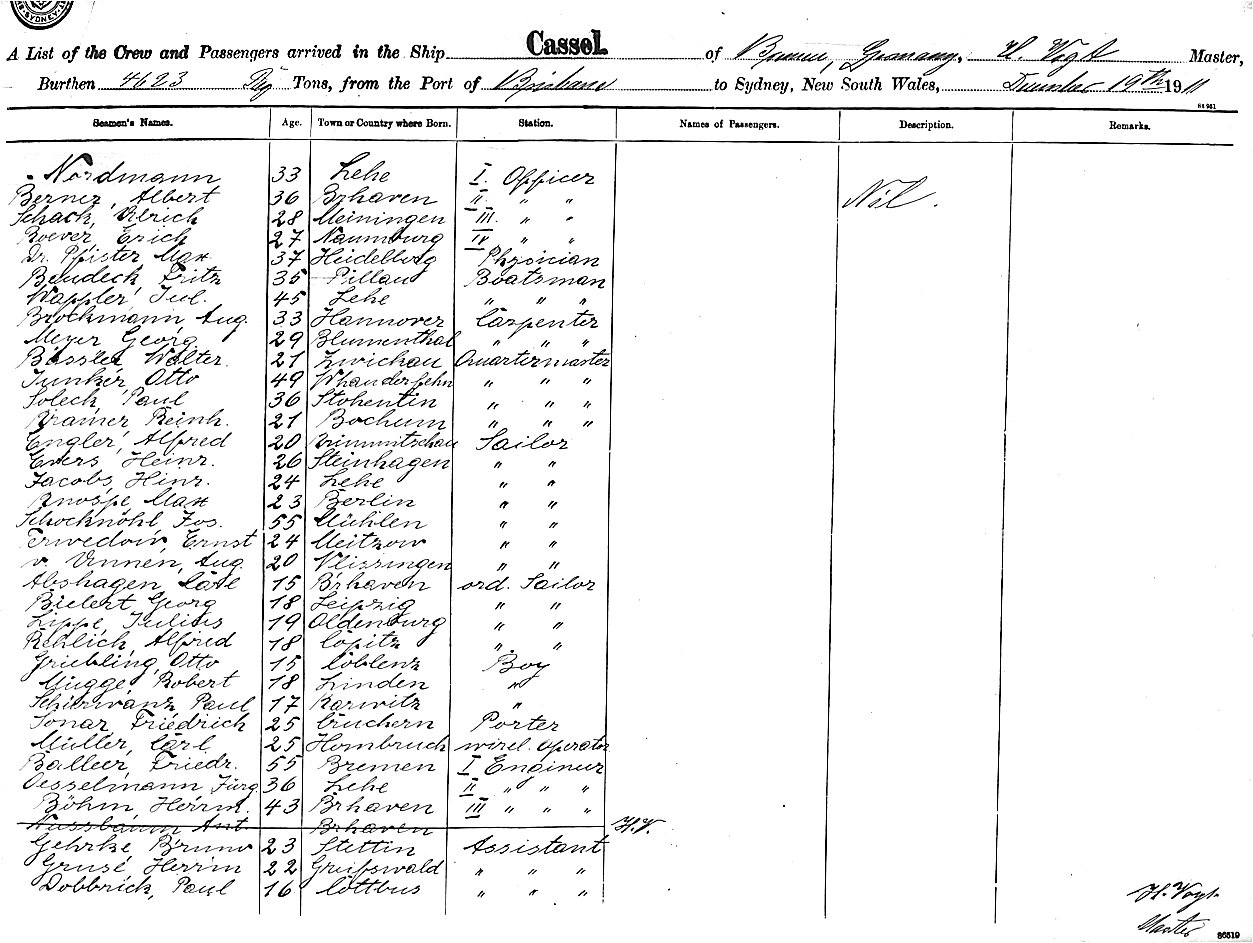 SYDNEY
A List of the Crew and Passengers arrived in the Ship Cassel of Bremen, Germany, H. Vogt Master,
Burthen 4623 Tons, from the Port of Brisbane to Sydney, New South Wales, December 19th 1911
Seamen's Names. Age. Town or Country where Born. Station. Names of Passengers. Description. Remarks.
Nordmann 33 Lehe I. Officer
Berner, Albert 36 Brhaven II. " " Nil.
Schack, Ulrich 28 Meiningen III. " "
Roever, Erich 27 Naumburg IV " "
Dr. Pfister, Max 37 Heidelberg Physician
Bendeck, Fritz 35 Pillau Boatsman
Wappler, Jul. 45 Lehe " " "
Brockmann, Aug. 33 Hannover Carpenter
Meyer Georg 29 Blumenthal " " "
Bässler Walter. 21 Zwickau Quartermaster
Junker, Otto 49 Whauderfehn " " "
Soleck, Paul 36 Stohentin " " "
Kramer, Reinh. 21 Bochum " " "
Engler, Alfred 20 Krimmitschau Sailor
Evers, Heinr. 26 Steinhagen " "
Jacobs, Hinr. 24 Lehe " "
Knospe, Max 23 Berlin " "
Schocknöhl, Jos. 55 Mühlen " "
Terwedow, Ernst 24 Meitzow " "
v. Vinnen, Aug. 20 Vlissingen " "
Abshagen, Carl 15 Brhaven ord. Sailor
Bielert, Georg 18 Leipzig " "
Lippe, Julius 19 Oldenburg " "
Rehlich, Alfred 18 Cöpitz " "
Griebling, Otto 15 Coblenz Boy
Mügge, Robert 18 Linden "
Schirwanz Paul 17 Karwitz "
Sonar, Friedrich 25 Cruchern Porter
Müller, Carl 25 Hombruch wirel. operator
Balleer, Friedr. 55 Bremen I Engineer
Oesselmann, Jürg. 36 Lehe II " " "
Böhm, Herm. 43 Brhaven III " " "
Nussbaum Ant. Brhaven H.V.
Gehrke, Bruno 23 Stettin Assistant
Grusé, Herrm 22 Greifswald " " "
Dobbrick, Paul 16 Cottbus " " "
H. Vogt
Master
86519